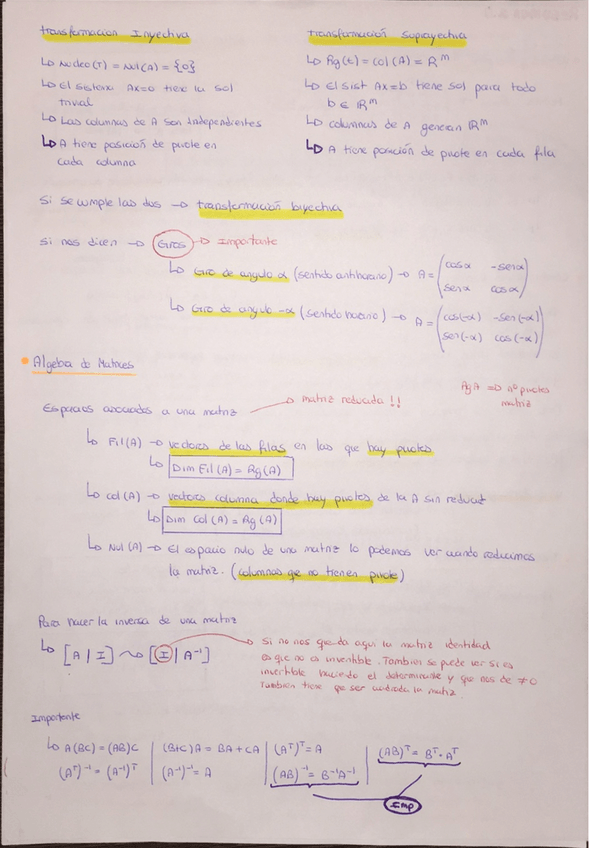 transformación Inyectiva
↳ Nucleo(T) = Nul(A) = {0}
↳ El sistema Ax=0 tiene la sol
trivial
↳ Las columnas de A son independientes
↳ A tiene posición de pivote en
cada columna
transformación Suprayectiva
↳ Rg(t) = Col(A) = R^m
↳ El sist Ax=b tiene sol para todo
b ∈ R^m
↳ columnas de A generan R^m
↳ A tiene posición de pivote en cada fila
Si se cumple las dos → transformación biyectiva
Si nos dicen → Giros → Importante
↳ Giro de angulo α (sentido antihorario) → A = (cos α -sen α
sen α cos α)
↳ Giro de angulo -α (sentido horario) → A = (cos(-α) -sen(-α)
sen(-α) cos(-α))
• Algebra de Matrices
Rg A ⇒ nº pivotes
matriz
Espacios asociados a una matriz → matriz reducida !!
↳ Fil(A) → vectores de las filas en las que hay pivotes
↳ Dim Fil(A) = Rg(A)
↳ Col(A) → vectores columna donde hay pivotes de la A sin reducir
↳ Dim Col(A) = Rg(A)
↳ Nul(A) → El espacio nulo de una matriz lo podemos ver cuando reducimos
la matriz. (columnas que no tienen pivote)
Para hacer la inversa de una matriz
↳ [A | I] ~ [I | A⁻¹]
Si no nos queda aqui la matriz identidad
es que no es invertible. Tambien se puede ver si es
invertible haciendo el determinante y que nos de ≠0
Tambien tiene que ser cuadrada la matriz.
Importante
↳ A(BC) = (AB)C | (B+C)A = BA + CA | (Aᵀ)ᵀ = A | (AB)ᵀ = Bᵀ · Aᵀ
(Aᵀ)⁻¹ = (A⁻¹)ᵀ | (A⁻¹)⁻¹ = A | (AB)⁻¹ = B⁻¹A⁻¹
Imp